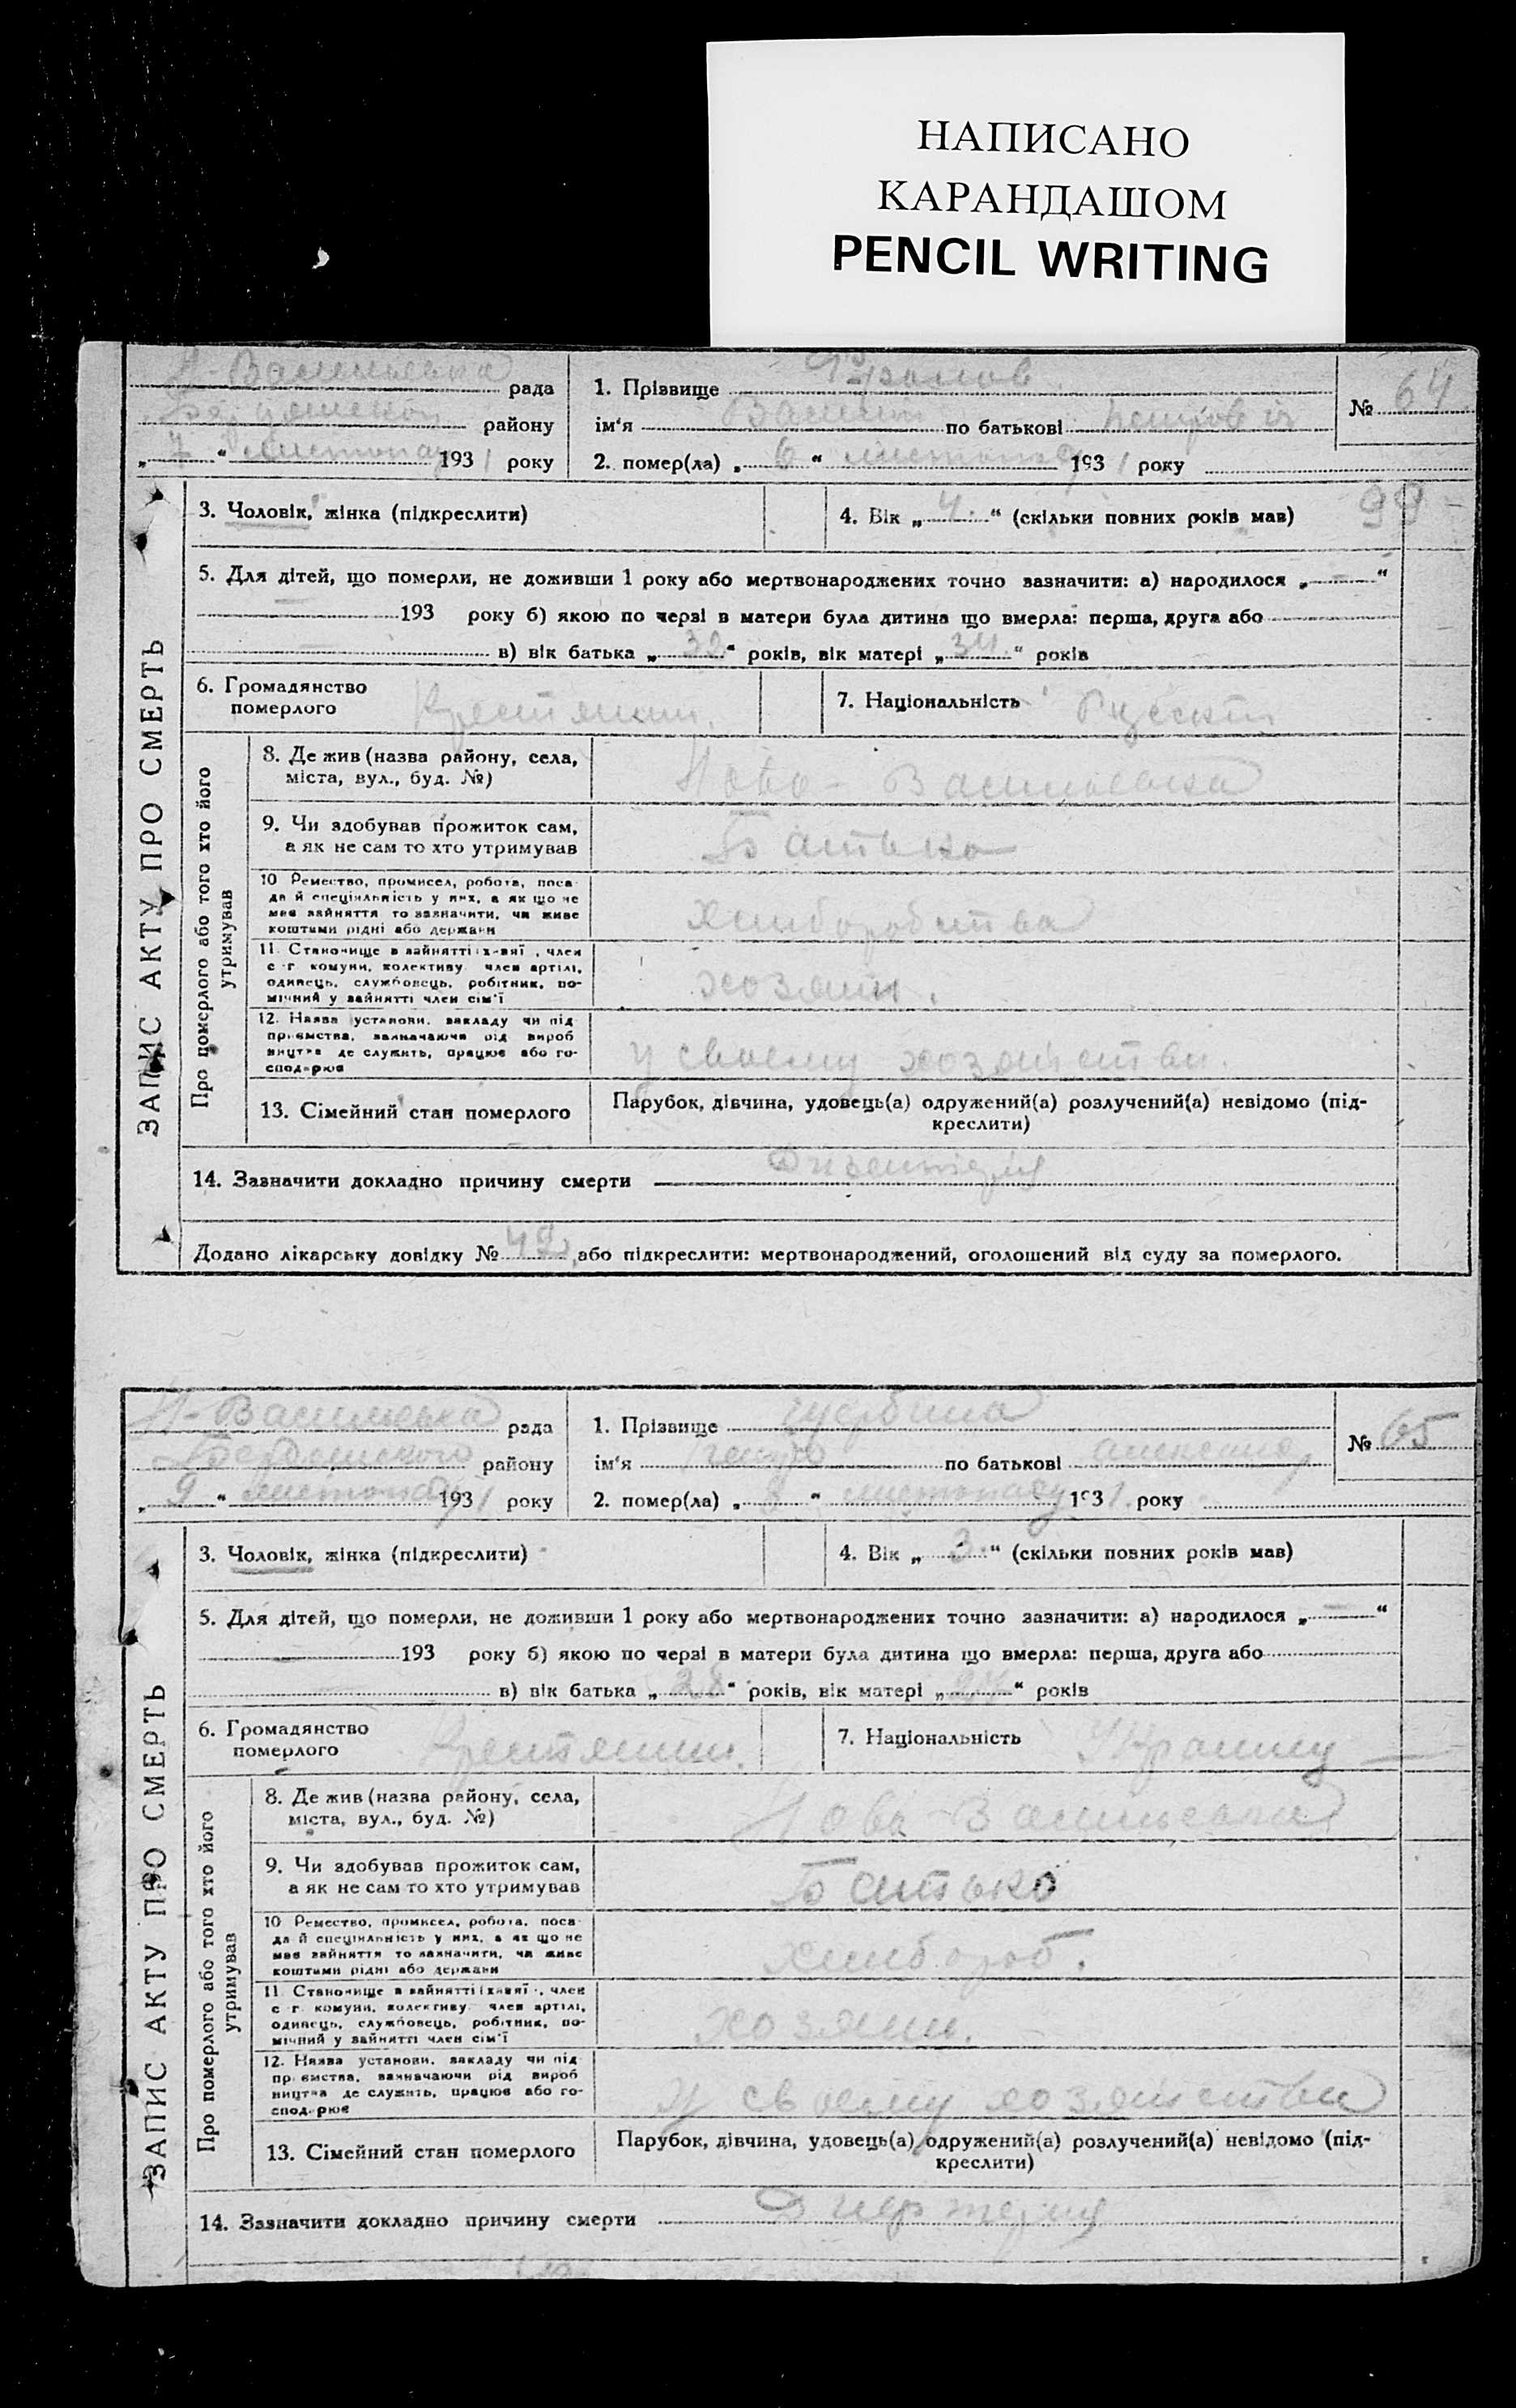 НАПИСАНО
КАРАНДАШОМ
PENCIL WRITING
Н-Васильевка рада
району
„7“ листопад 1931 року
1. Прізвище
ім'я Василь по батькові Петрович
2. помер(ла) „6“ листопад 1931 року
№ 64
3. Чоловік, жінка (підкреслити)
4. Вік „4“ (скільки повних років мав)
99
5. Для дітей, що померли, не доживши 1 року або мертвонароджених точно зазначити: а) народилося „—“
— 193 року б) якою по черзі в матери була дитина що вмерла: перша, друга або
— в) вік батька „32“ років, вік матері „34“ років
6. Громадянство
померлого
Крестянин.
7. Національність
ЗАПИС АКТУ ПРО СМЕРТЬ
Про померлого або того хто його
утримував
8. Де жив (назва району, села,
міста, вул., буд. №)
Ново-Васильевка
9. Чи здобував прожиток сам,
а як не сам то хто утримував
Батько
10 Ремество, промисел, робота, поса
да й спеціяльність у них, а як що не
мав зайняття то зазначити, чи живе
коштами рідні або держави
хлиборобства
11. Становище в зайнятті , член
с-г комуни, колективу член артілі,
одинець, службовець, робітник, по-
мічний у зайнятті член сім'ї
хозяин.
12. Назва установи, закладу чи під
приємства, зазначаючи рід вироб
ництва де служить, працює або го-
сподарює
у своему хозяйстви.
13. Сімейний стан померлого
Парубок, дівчина, удовець(а) одружений(а) розлучений(а) невідомо (під-
креслити)
14. Зазначити докладно причину смерти
Додано лікарську довідку № 42, або підкреслити: мертвонароджений, оголошений від суду за померлого.
Н-Васильевка рада
району
„9“ листопаду 1931 року
1. Прізвище Щербина
ім'я Петро по батькові
2. помер(ла) „8“ листопаду 1931. року
№ 65
3. Чоловік, жінка (підкреслити)
4. Вік „3.“ (скільки повних років мав)
5. Для дітей, що померли, не доживши 1 року або мертвонароджених точно зазначити: а) народилося „—“
— 193 року б) якою по черзі в матери була дитина що вмерла: перша, друга або
— в) вік батька „28“ років, вік матері „“ років
6. Громадянство
померлого
Крестянин.
7. Національність
ЗАПИС АКТУ ПРО СМЕРТЬ
Про померлого або того хто його
утримував
8. Де жив (назва району, села,
міста, вул., буд. №)
Ново Васильевка
9. Чи здобував прожиток сам,
а як не сам то хто утримував
Батько
10 Ремество, промисел, робота, поса
да й спеціяльність у них, а як що не
мав зайняття то зазначити, чи живе
коштами рідні або держави
хлибороб.
11. Становище в зайнятті , член
с-г комуни, колективу член артілі,
одинець, службовець, робітник, по-
мічний у зайнятті член сім'ї
хозяин.
12. Назва установи, закладу чи під
приємства, зазначаючи рід вироб
ництва де служить, працює або го-
сподарює
у своему хозяйстви
13. Сімейний стан померлого
Парубок, дівчина, удовець(а) одружений(а) розлучений(а) невідомо (під-
креслити)
14. Зазначити докладно причину смерти